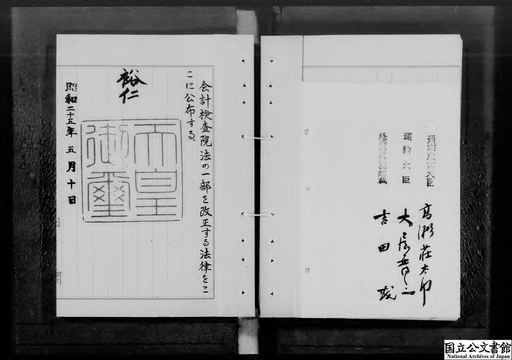 高瀬荘太郎
運輸大臣 大屋晋三
吉田茂
会計検査院法の一部を改正する法律をこ
こに公布する。
裕仁
天皇
御璽
昭和二十五年五月十日
国立公文書館
National Archives of Japan